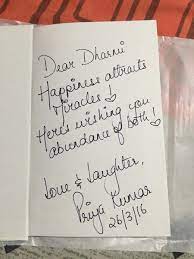 Dear Dharni
Happiness attracts
Miracles!
Here's wishing you
abundance of both!
Love & Laughter,
Priya Kumar
26/3/16